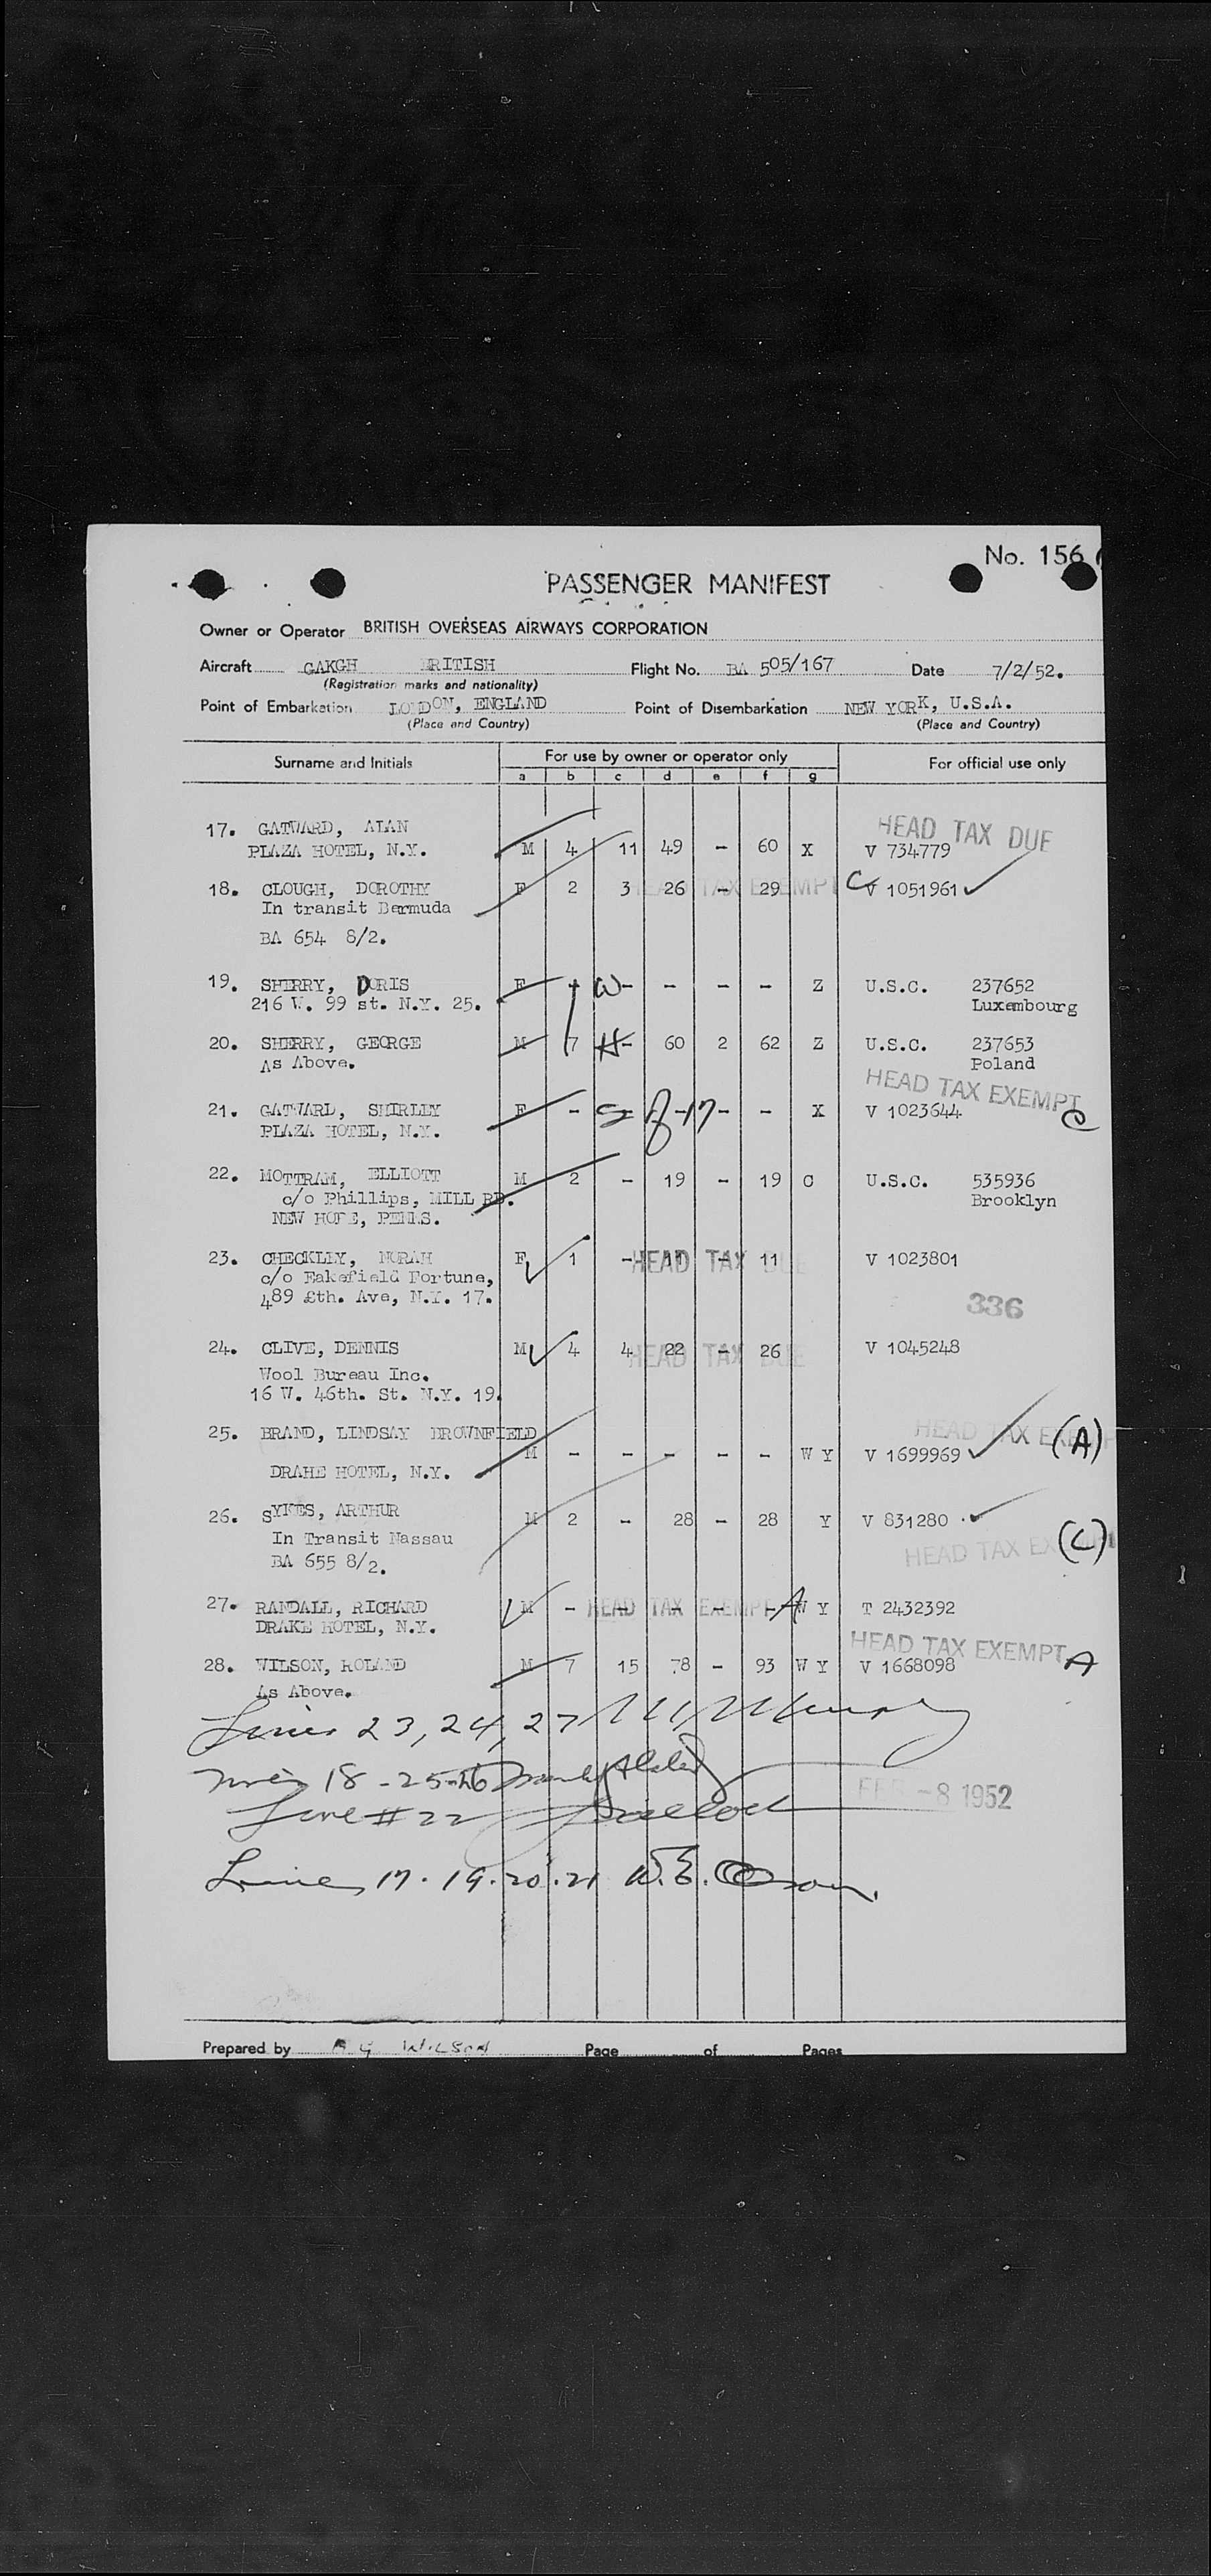 No. 156
PASSENGER MANIFEST
Owner or Operator BRITISH OVERSEAS AIRWAYS CORPORATION
Aircraft GAKGH BRITISH Flight No. BA 505/167 Date 7/2/52.
(Registration marks and nationality)
Point of Embarkation LONDON, ENGLAND Point of Disembarkation NEW YORK, U.S.A.
(Place and Country) (Place and Country)
Surname and Initials For use by owner or operator only For official use only
a b c d e f g
17. GATWARD, ALAN HEAD TAX DUE
PLAZA HOTEL, N.Y. M 4 11 49 - 60 X V 734779
18. CLOUGH, DOROTHY F 2 3 26 - 29 HEAD TAX EXEMPT C V 1051961
In transit Bermuda
BA 654 8/2.
19. SHERRY, DORIS F - W - - - - Z U.S.C. 237652
216 W. 99 st. N.Y. 25. Luxembourg
20. SHERRY, GEORGE M 7 H - 60 2 62 Z U.S.C. 237653
As Above. Poland
HEAD TAX EXEMPT
21. GATWARD, SHIRLEY F - - - X V 1023644 C
PLAZA HOTEL, N.Y.
22. MOTTRAM, ELLIOTT M 2 - 19 - 19 C U.S.C. 535936
c/o Phillips, MILL RD. Brooklyn
NEW HOPE, PENNS.
23. CHECKLEY, NORAH F 1 - 11 - 11 HEAD TAX DUE V 1023801
c/o Fakefield Fortune,
489 5th. Ave, N.Y. 17. 336
24. CLIVE, DENNIS M 4 4 22 - 26 HEAD TAX DUE V 1045248
Wool Bureau Inc.
16 W. 46th. St. N.Y. 19.
25. BRAND, LINDSAY BROWNFIELD HEAD TAX EXEMPT (A)
M - - - - - W Y V 1699969
DRAHE HOTEL, N.Y.
26. SYKES, ARTHUR M 2 - 28 - 28 Y V 831280
In Transit Nassau HEAD TAX EXEMPT (C)
BA 655 8/2.
27. RANDALL, RICHARD M - - - - - HEAD TAX EXEMPT A W Y T 2432392
DRAKE HOTEL, N.Y.
HEAD TAX EXEMPT A
28. WILSON, ROLAND M 7 15 78 - 93 W Y V 1668098
As Above.
Lines 23, 24, 27
18 - 25 - 26
FEB -8 1952
Line # 22
Lines 17. 19. 20. 21 W.E.
Prepared by WILSON Page of Pages